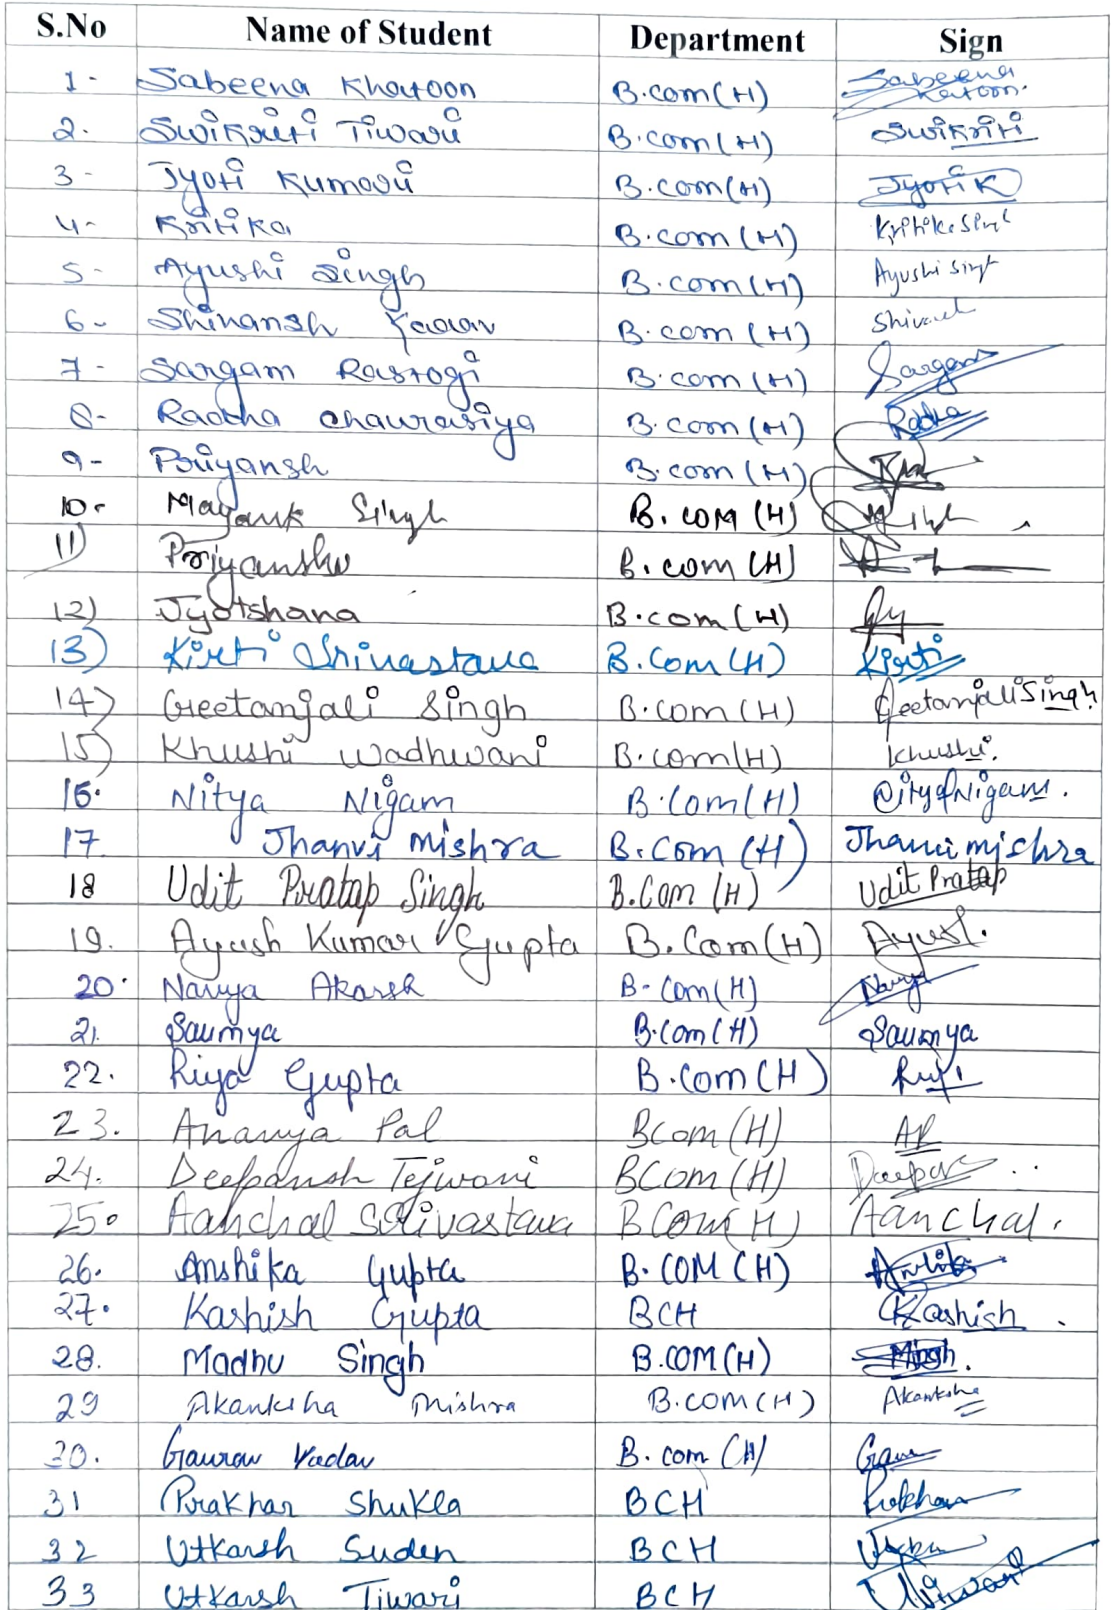 S.No Name of Student Department Sign
1- Sabeena Khatoon B.com(H) Sabeena Katoon.
2. Swikriti Tiwari B.com(H) Swikriti
3- Jyoti Kumari B.com(H) Jyoti K
4- Kritika B.com(H) Kritika Singh
5- Ayushi Singh B.com(H) Ayushi Singh
6- Shivansh Yadav B.com(H)
7- Sargam Rastogi B.com(H) Sargam
8- Radha chaurasiya B.com(H) Radha
9- Priyansh B.com(H)
10- Mayank Singh B.COM(H)
11) Priyanshu B.com(H)
12) Jyotshana B.com(H) Jy
13) Kirti Srivastava B.Com(H) Kirti
14) Geetanjali Singh B.com(H) Geetanjali Singh.
15) Khushi Wadhwani B.com(H) Khushi.
16. Nitya Nigam B.Com(H) Nitya Nigam.
17 Jhanvi Mishra B.Com(H) Jhanvi mishra
18 Udit Pratap Singh B.Com(H) Udit Pratap
19. Ayush Kumar Gupta B.Com(H) Ayush.
20. Navya Akarsh B-Com(H) Navya
21. Saumya B.Com(H) Saumya
22. Riya Gupta B.Com(H) Riya
23. Ananya Pal BCom(H) AP
24. Deepansh Tejwani BCom(H)
25. Aanchal Srivastava BCom(H) Aanchal.
26. Anshika Gupta B.COM(H)
27. Kashish Gupta BCH Kashish.
28. Madhu Singh B.COM(H)
29 Akanksha Mishra B.COM(H) Akanksha
30. Gaurav Yadav B.com(H)
31 Prakhar Shukla BCH Prakhar
32 Utkarsh Suden BCH
33 Utkarsh Tiwari BCH